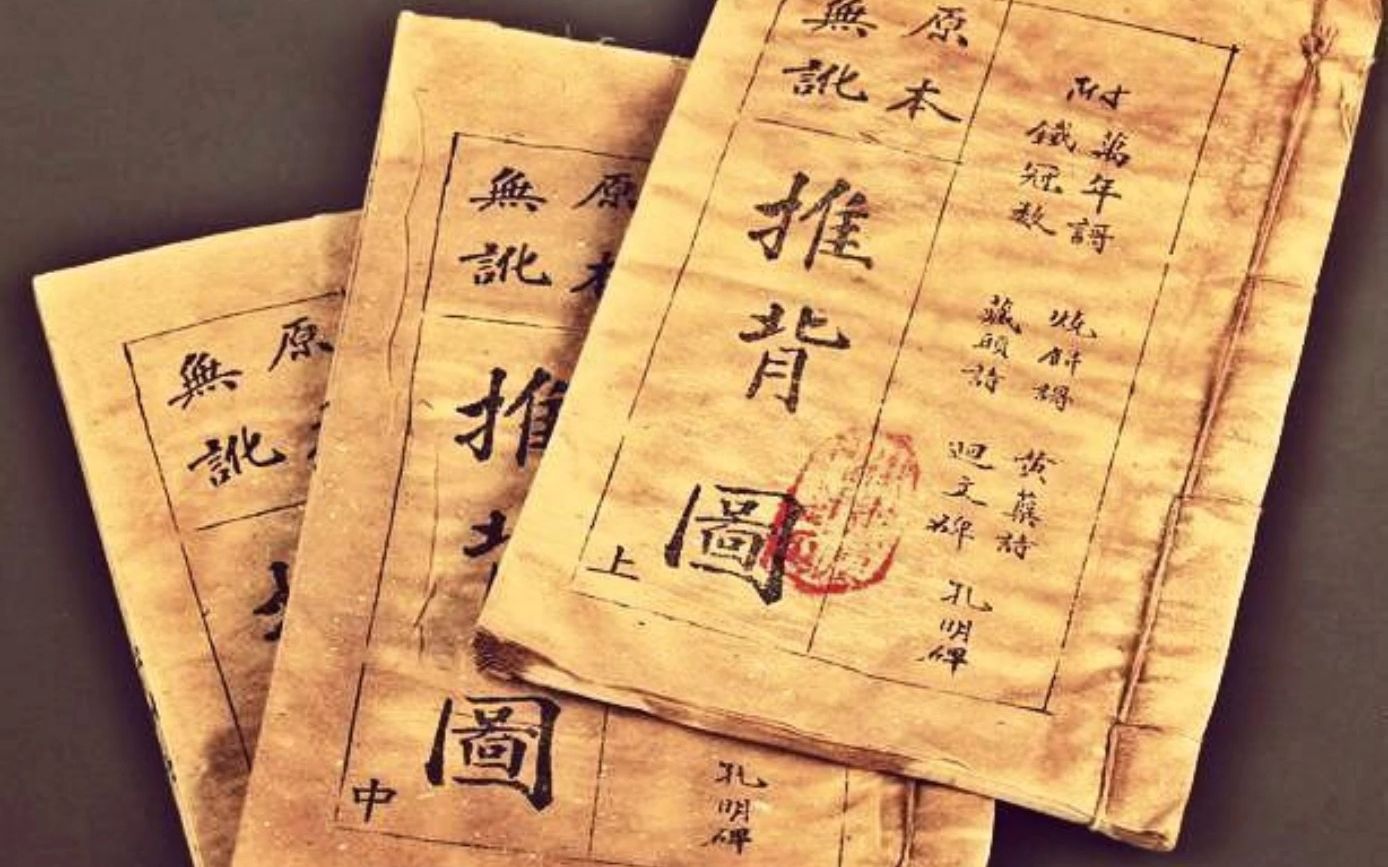 附
萬年謌 烧餅謌 黄蘗詩
鐵冠数 藏頭詩 迴文碑 孔明碑
原本
無訛
推背圖
上
孔明碑
原本
無訛
推背圖
中
原
無訛